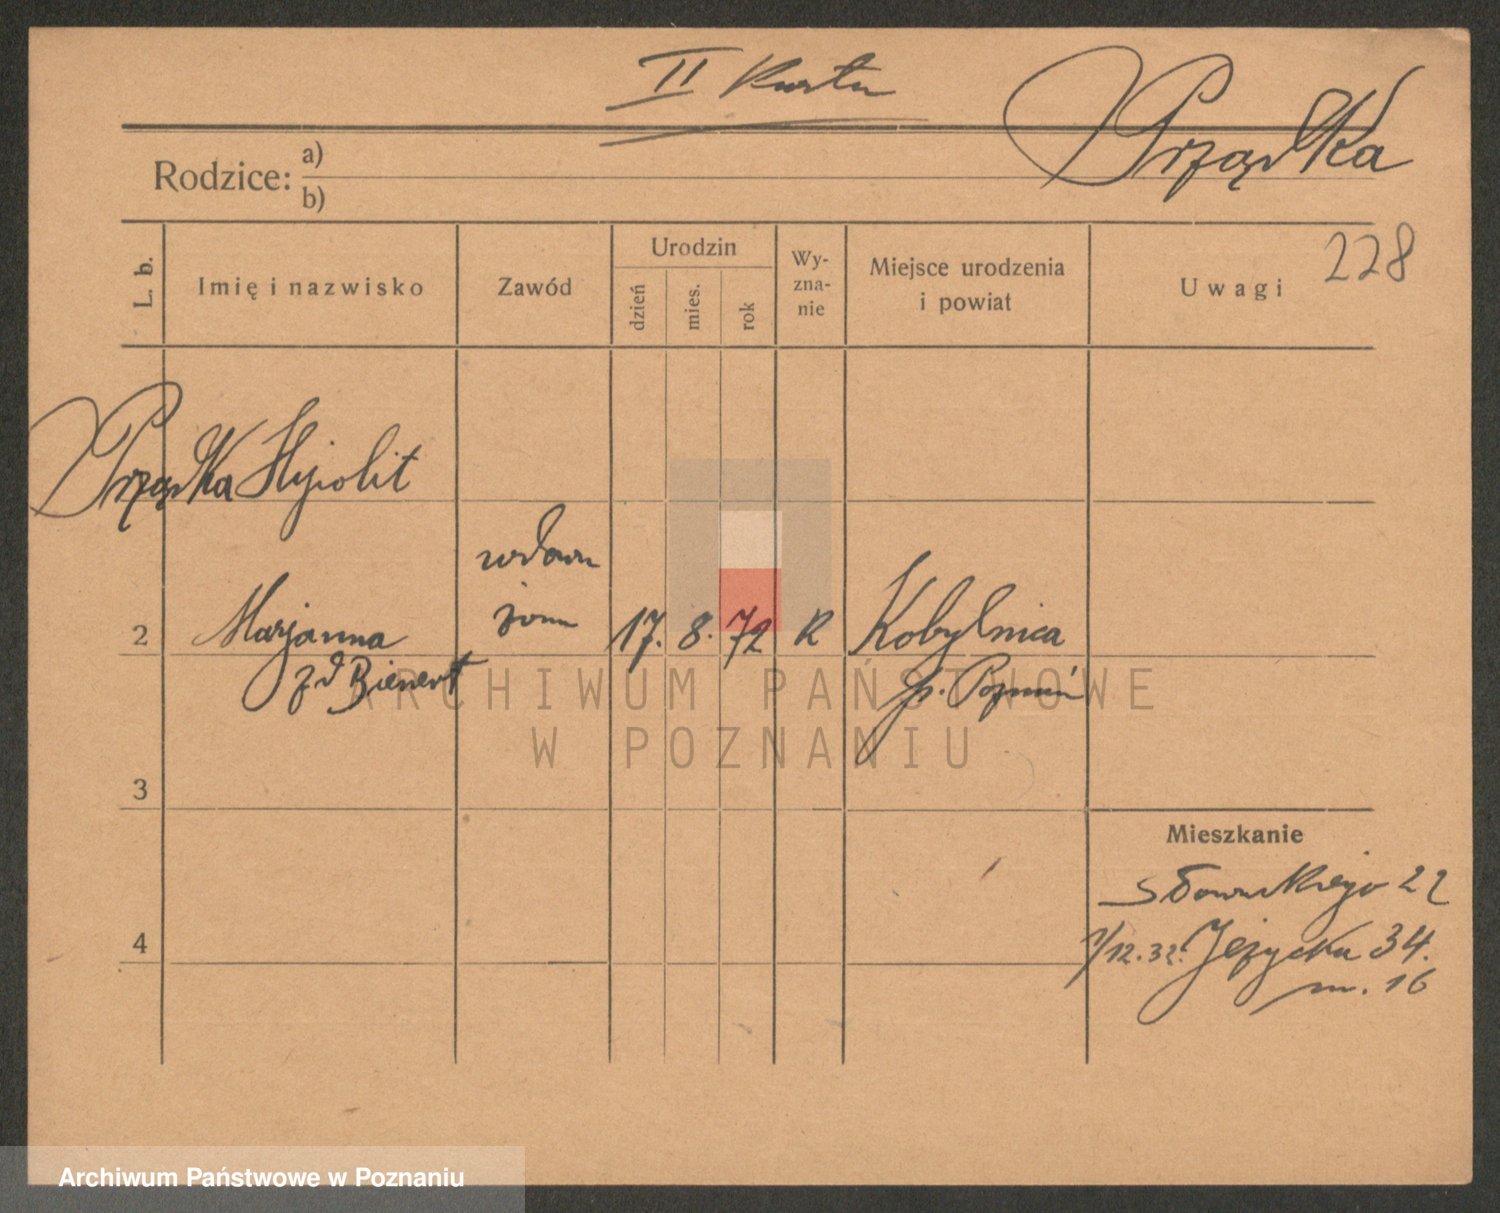 II Karta
Prządka
Rodzice: a)
b)
228
L. b.
Imię i nazwisko
Zawód
Urodzin
dzień
mies.
rok
Wy-
zna-
nie
Miejsce urodzenia
i powiat
Uwagi
Prządka Hypolit
wdowa
żona
2 Marjanna 17. 8. 72 R Kobylnica
zd Bienert p. Poznań
3
Mieszkanie
Słowackiego 22
4
1/12.32. Jeżycka 34.
m. 16
ARCHIWUM PAŃSTWOWE
W POZNANIU
Archiwum Państwowe w Poznaniu